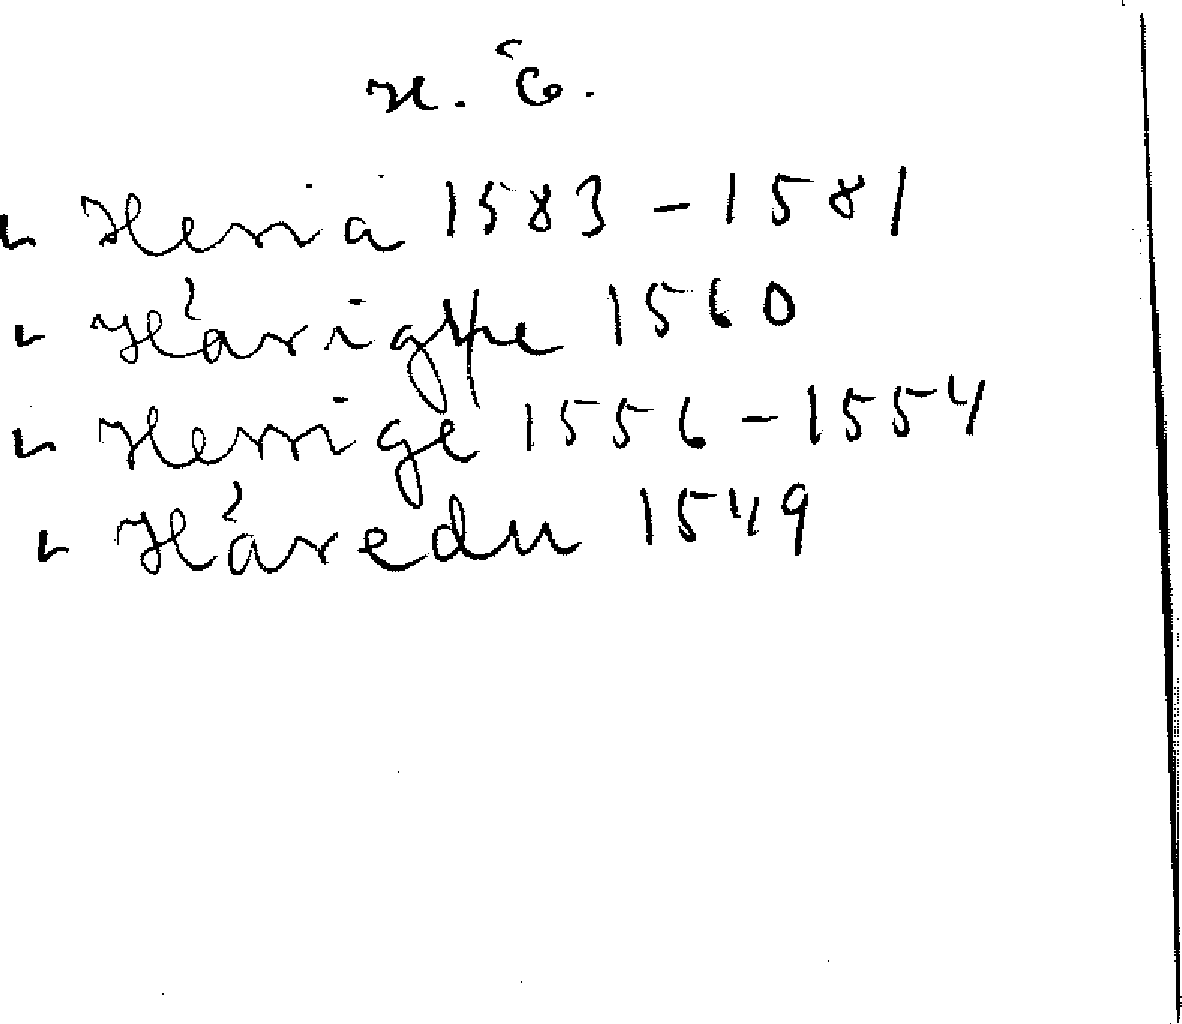 n. Ö.
" Herria 1583 - 1581
" Hárigthe 1560
" Herrige 1556 - 1554
" Háredu 1549